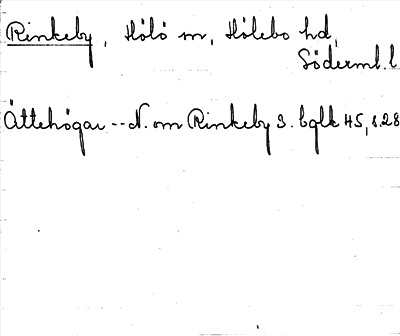 Rinkeby, Hölö sn, Hölebo hd,
Söderml. l
Ättehögar -- N. om Rinkeby S. bglk 45, s. 28